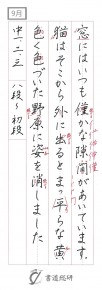 9月
窓にはいつも僅かな隙間があいています。
猫はそこから外に出るとまっ平らな黄
色く色づいた野原に姿を消しました
中、二、三 八段〜初段
書道総研